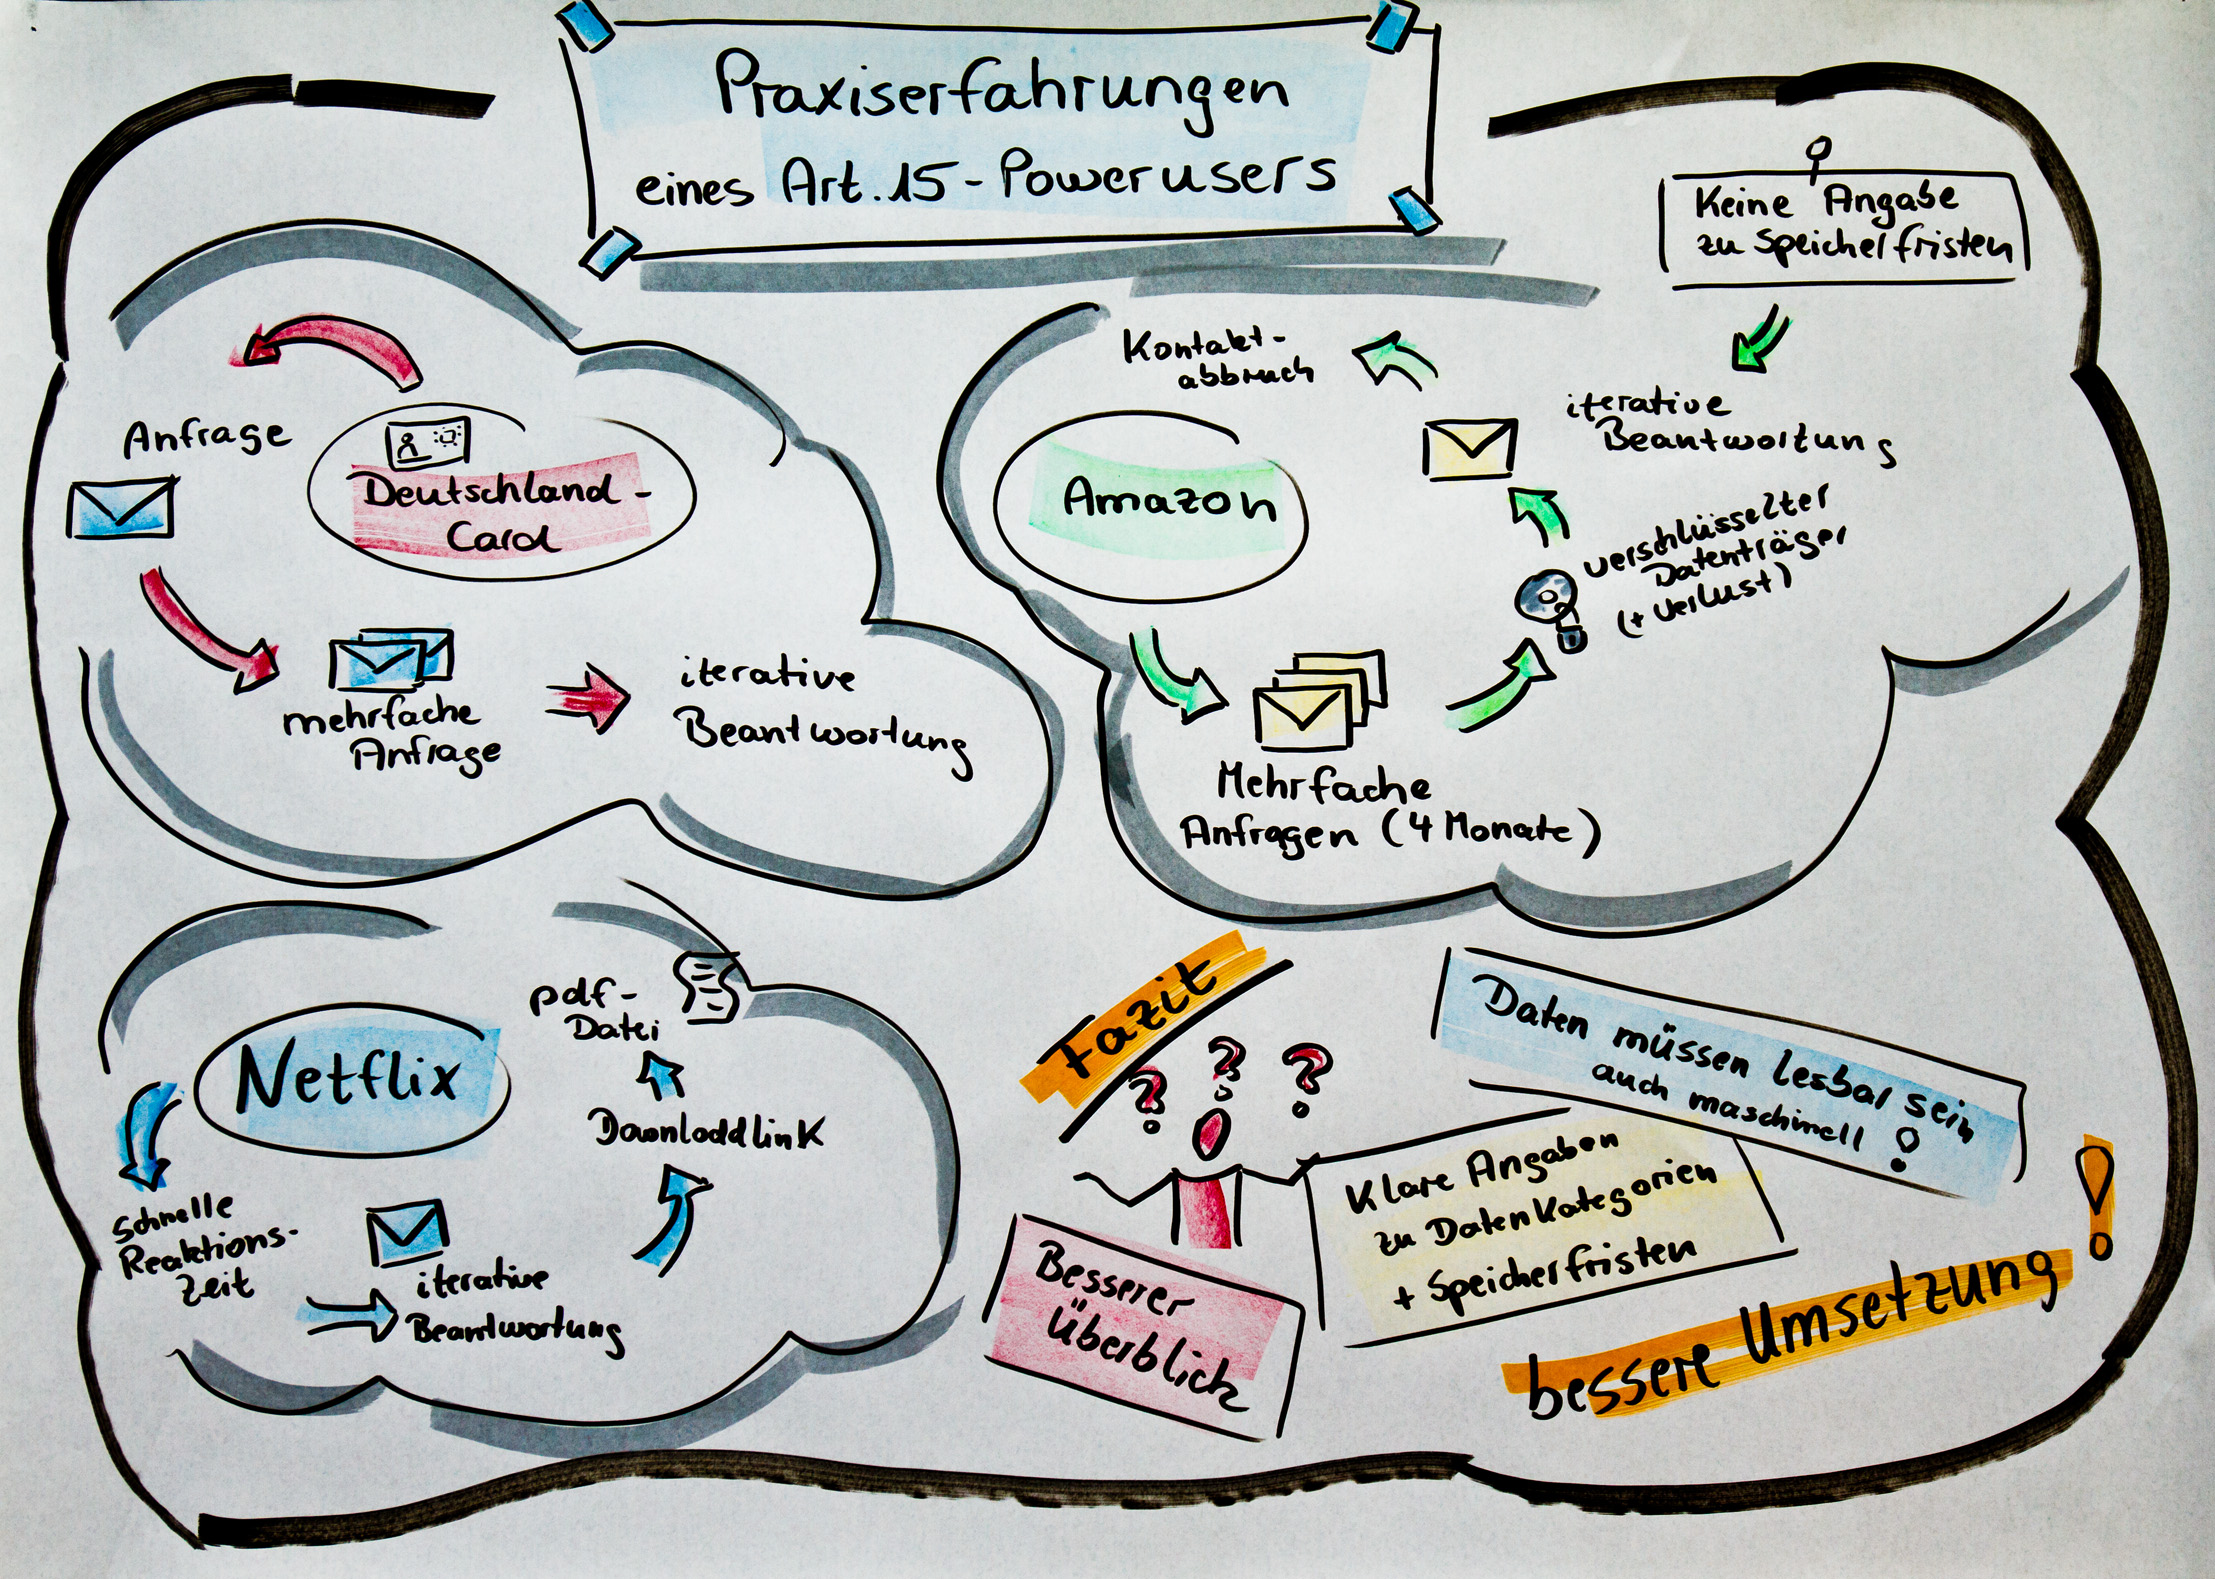 Praxiserfahrungen
eines Art. 15 - Powerusers
Anfrage
Deutschland-
Card
mehrfache
Anfrage
iterative
Beantwortung
Keine Angabe
zu Speicherfristen
Kontakt-
abbruch
iterative
Beantwortung
Amazon
verschlüsselter
Datenträger
(+ Verlust)
Mehrfache
Anfragen (4 Monate)
Netflix
pdf-
Datei
Downloadlink
schnelle
Reaktions-
zeit
iterative
Beantwortung
Fazit
? ? ?
Daten müssen lesbar sein
auch maschinell !
Klare Angaben
zu Datenkategorien
+ Speicherfristen
Besserer
Überblick
bessere Umsetzung !